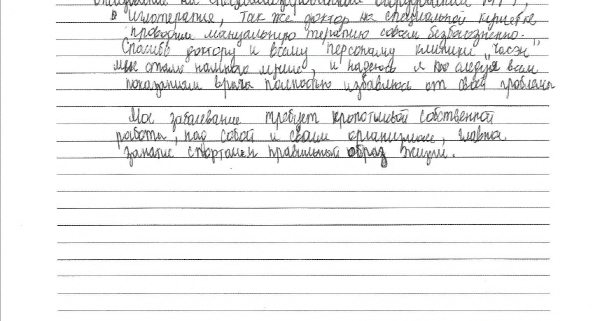 в иглотерапия, так же доктор на специальной кушетке
проводит мануальную терапию совсем безболезненно.
Спасибо доктору и всему персоналу клиники
мне стало намного лучше, и надеюсь я последуя всем
показаниям врача полностью избавлюсь от своей проблемы
Мое заболевание требует кропотливой собственной
работы, над собой и своим организмом, главное
занятие спортом и правильный образ жизни.